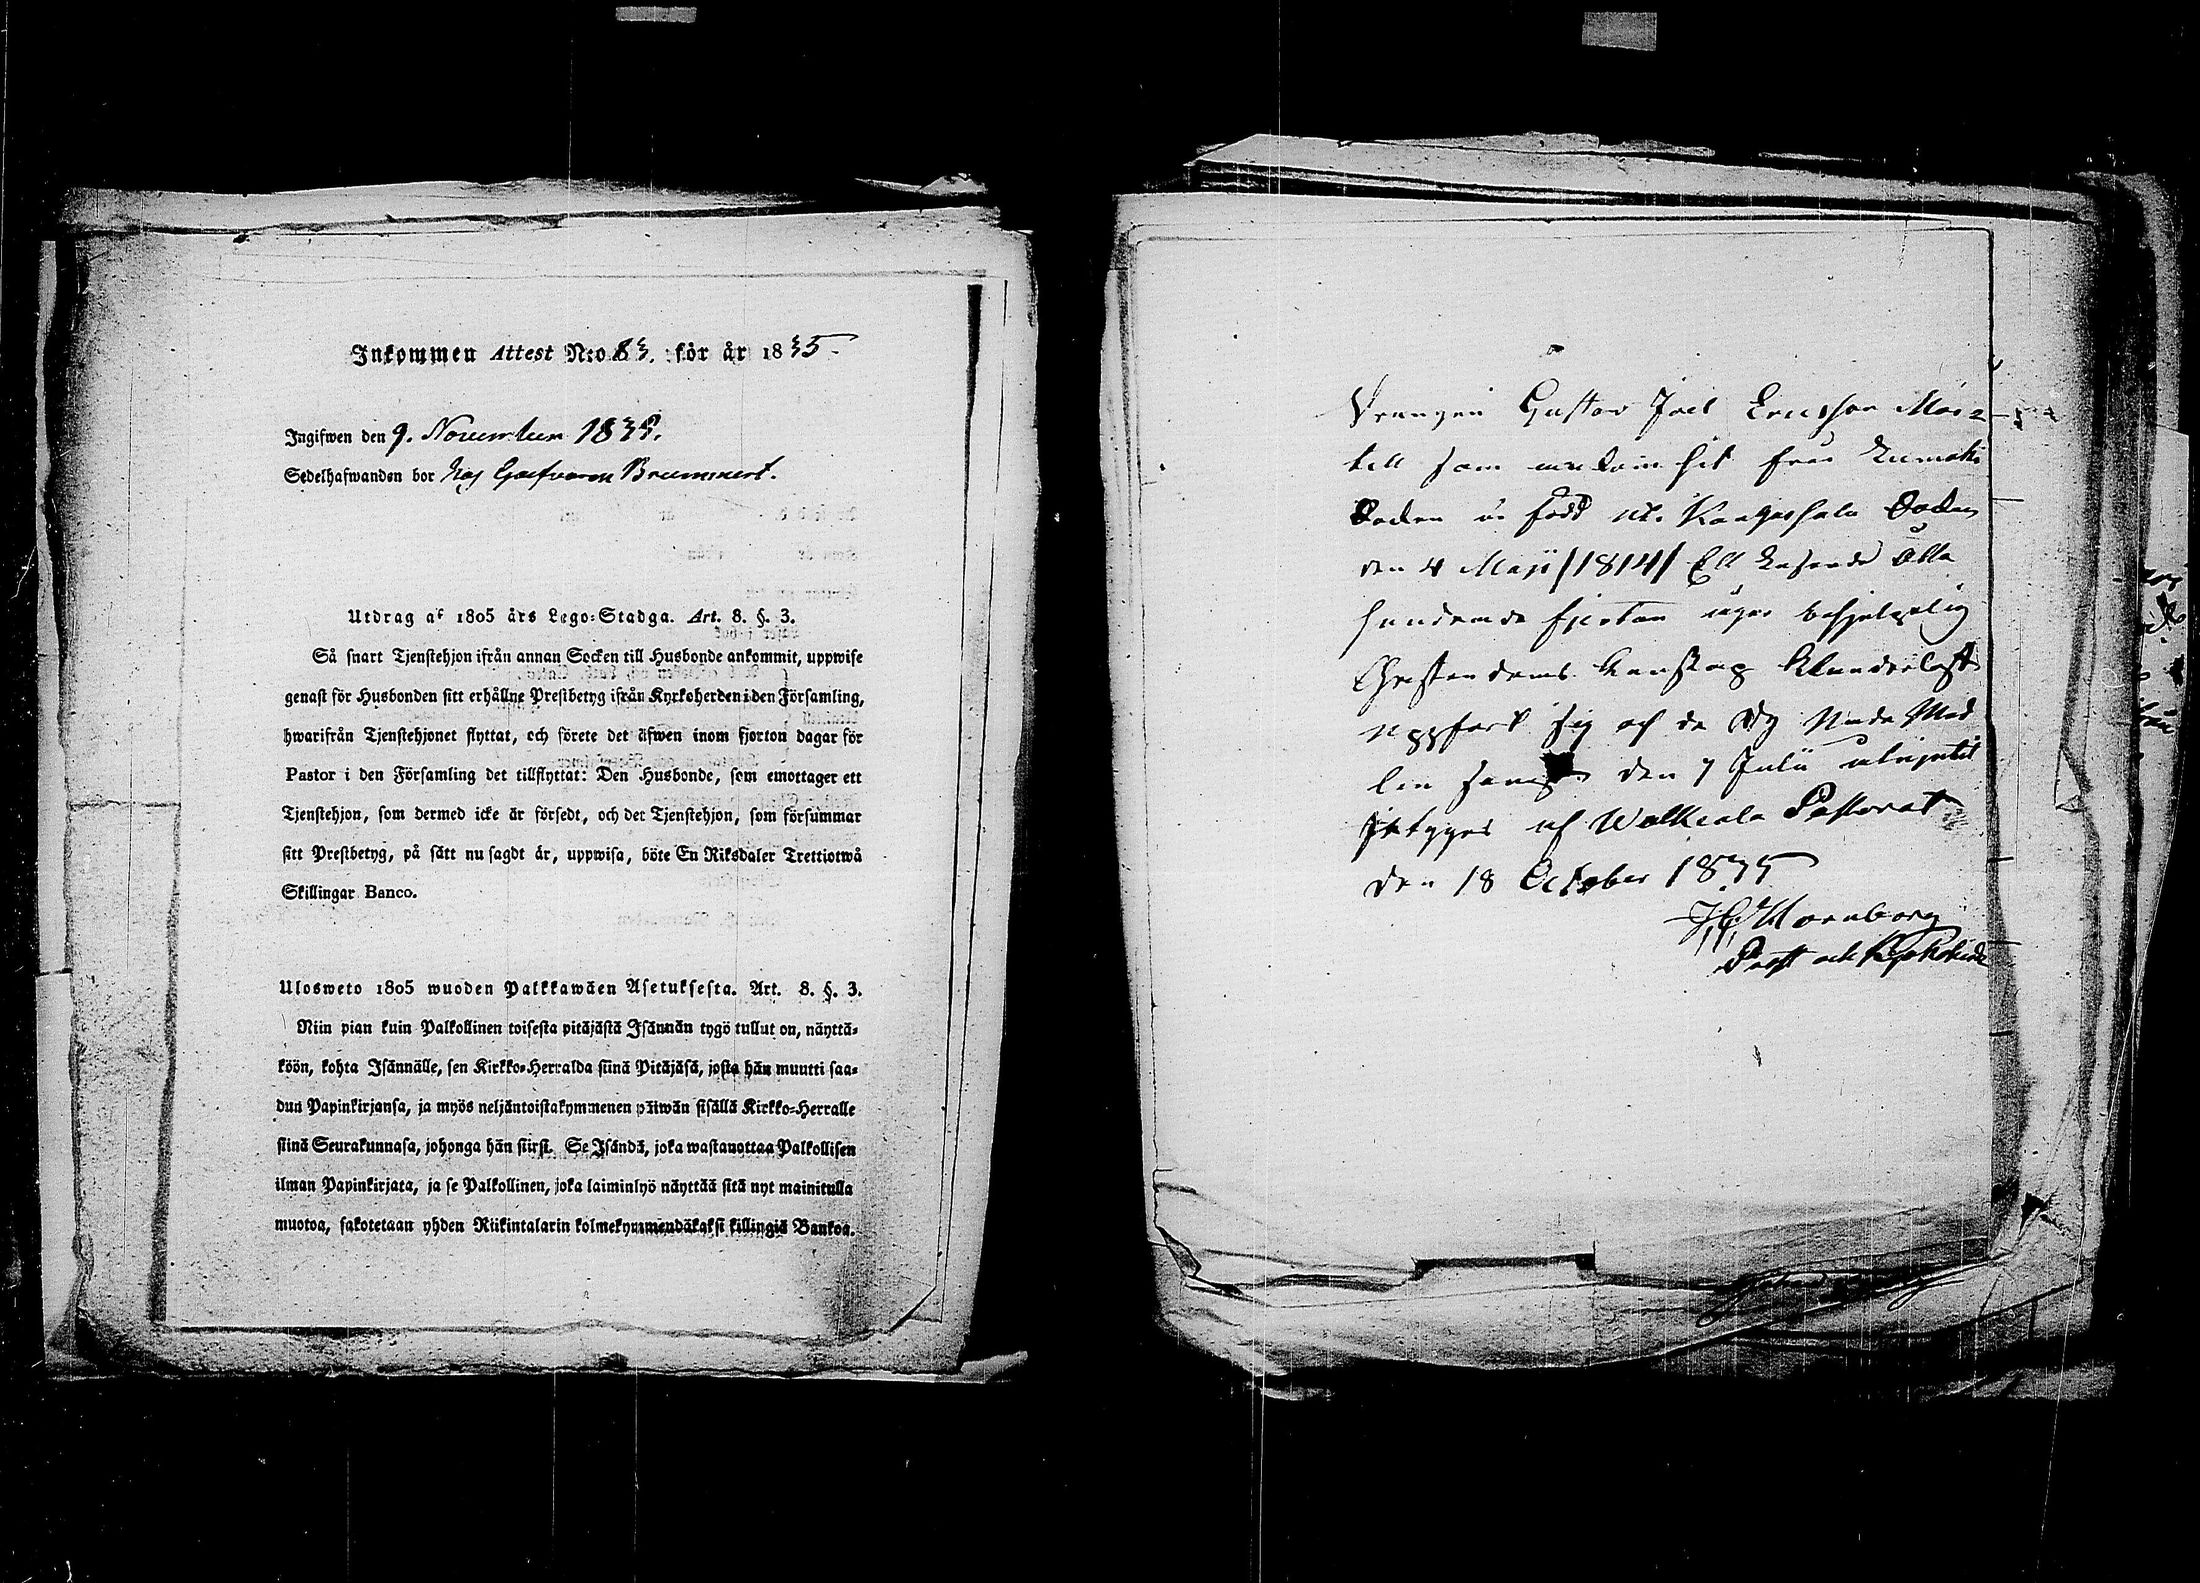 Inkommen Attest N:o 83. för år 1835.
Ingifwen den 9. November 1835.
Sedelhafwanden bor hos Garfvaren Brummert.
Utdrag af 1805 års Lego-Stadga. Art. 8. §. 3.
Så snart Tjenstehjon ifrån annan Socken till Husbonde ankommit, uppwise
genast för Husbonden sitt erhållne Prestbetyg ifrån Kyrkoherden i den Församling,
hwarifrån Tjenstehjonet flyttat, och förete det äfwen inom fjorton dagar för
Pastor i den Församling det tillflyttat: Den Husbonde, som emottager ett
Tjenstehjon, som dermed icke är försedt, och det Tjenstehjon, som försummar
sitt Prestbetyg, på sätt nu sagdt är, uppwisa, böte En Riksdaler Trettiotwå
Skillingar Banco.
Ulosweto 1805 wuoden Palkkawäen Asetuksesta. Art. 8. §. 3.
Niin pian kuin Palkollinen toisesta pitäjästä Isännän tygö tullut on, näyttä-
köön, kohta Isännälle, sen Kirkko-Herralda siinä Pitäjäsä, josta hän muutti saa-
dun Papinkirjansa, ja myös neljäntoistakymmenen päiwän sisällä Kirkko-Herralle
siinä Seurakunnasa, johonga hän siirsi. Se Isändä, joka wastanottaa Palkollisen
ilman Papinkirjata, ja se Palkollinen, joka laiminlyö näyttää sitä nyt mainitulla
muotoa, sakotetaan yhden Riikintalarin kolmekymmendäkaksi killingiä Bankoa.
Drengen Gustav Joel Ericsson
som hit från
Socken är född uti Kangasala Socken
den 4 Maji /1814/ Ett tusende Åtta
hundrade fjorton äger
Christendoms kunskap
uppfört sig och de H H Nade Med
len den 7 Julii
Intygas af Walkiala Pastorat
den 18 October 1835
J H Hornborg
Prost och Kyrkoherde